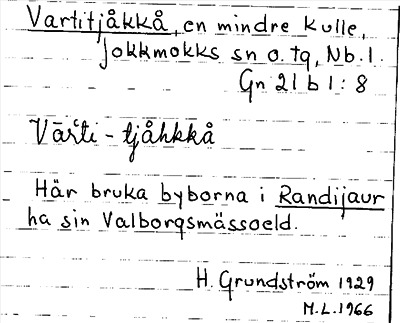 Vartitjåkkå, en mindre kulle,
Jokkmokks sn o. tg, Nb. l.
Gn 21 b 1 : 8
Vārti - tjåhkkå
Här bruka byborna i Randijaur
ha sin Valborgsmässoeld.
H. Grundström 1929
M.L. 1966